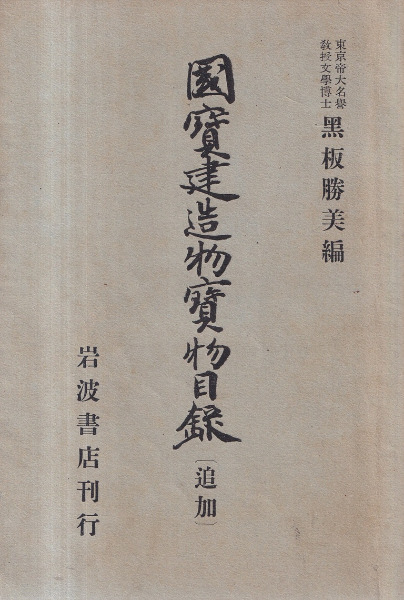 東京帝大名譽
教授文學博士
黑板勝美編
國寶建造物寶物目錄
〔追加〕
岩波書店刊行